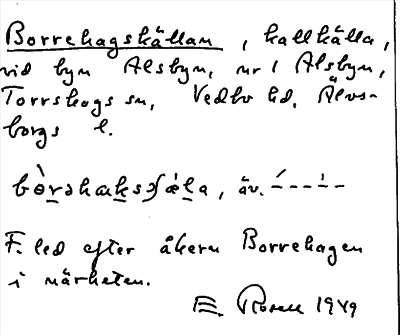 Borrehagskällan, kallkälla,
vid byn Alsbyn, nr 1 Alsbyn,
Torrskogs sn, Vedbo hd, Älvs-
borgs l.
F. led efter åkern Borrehagen
i närheten.
E. Rosell 1949